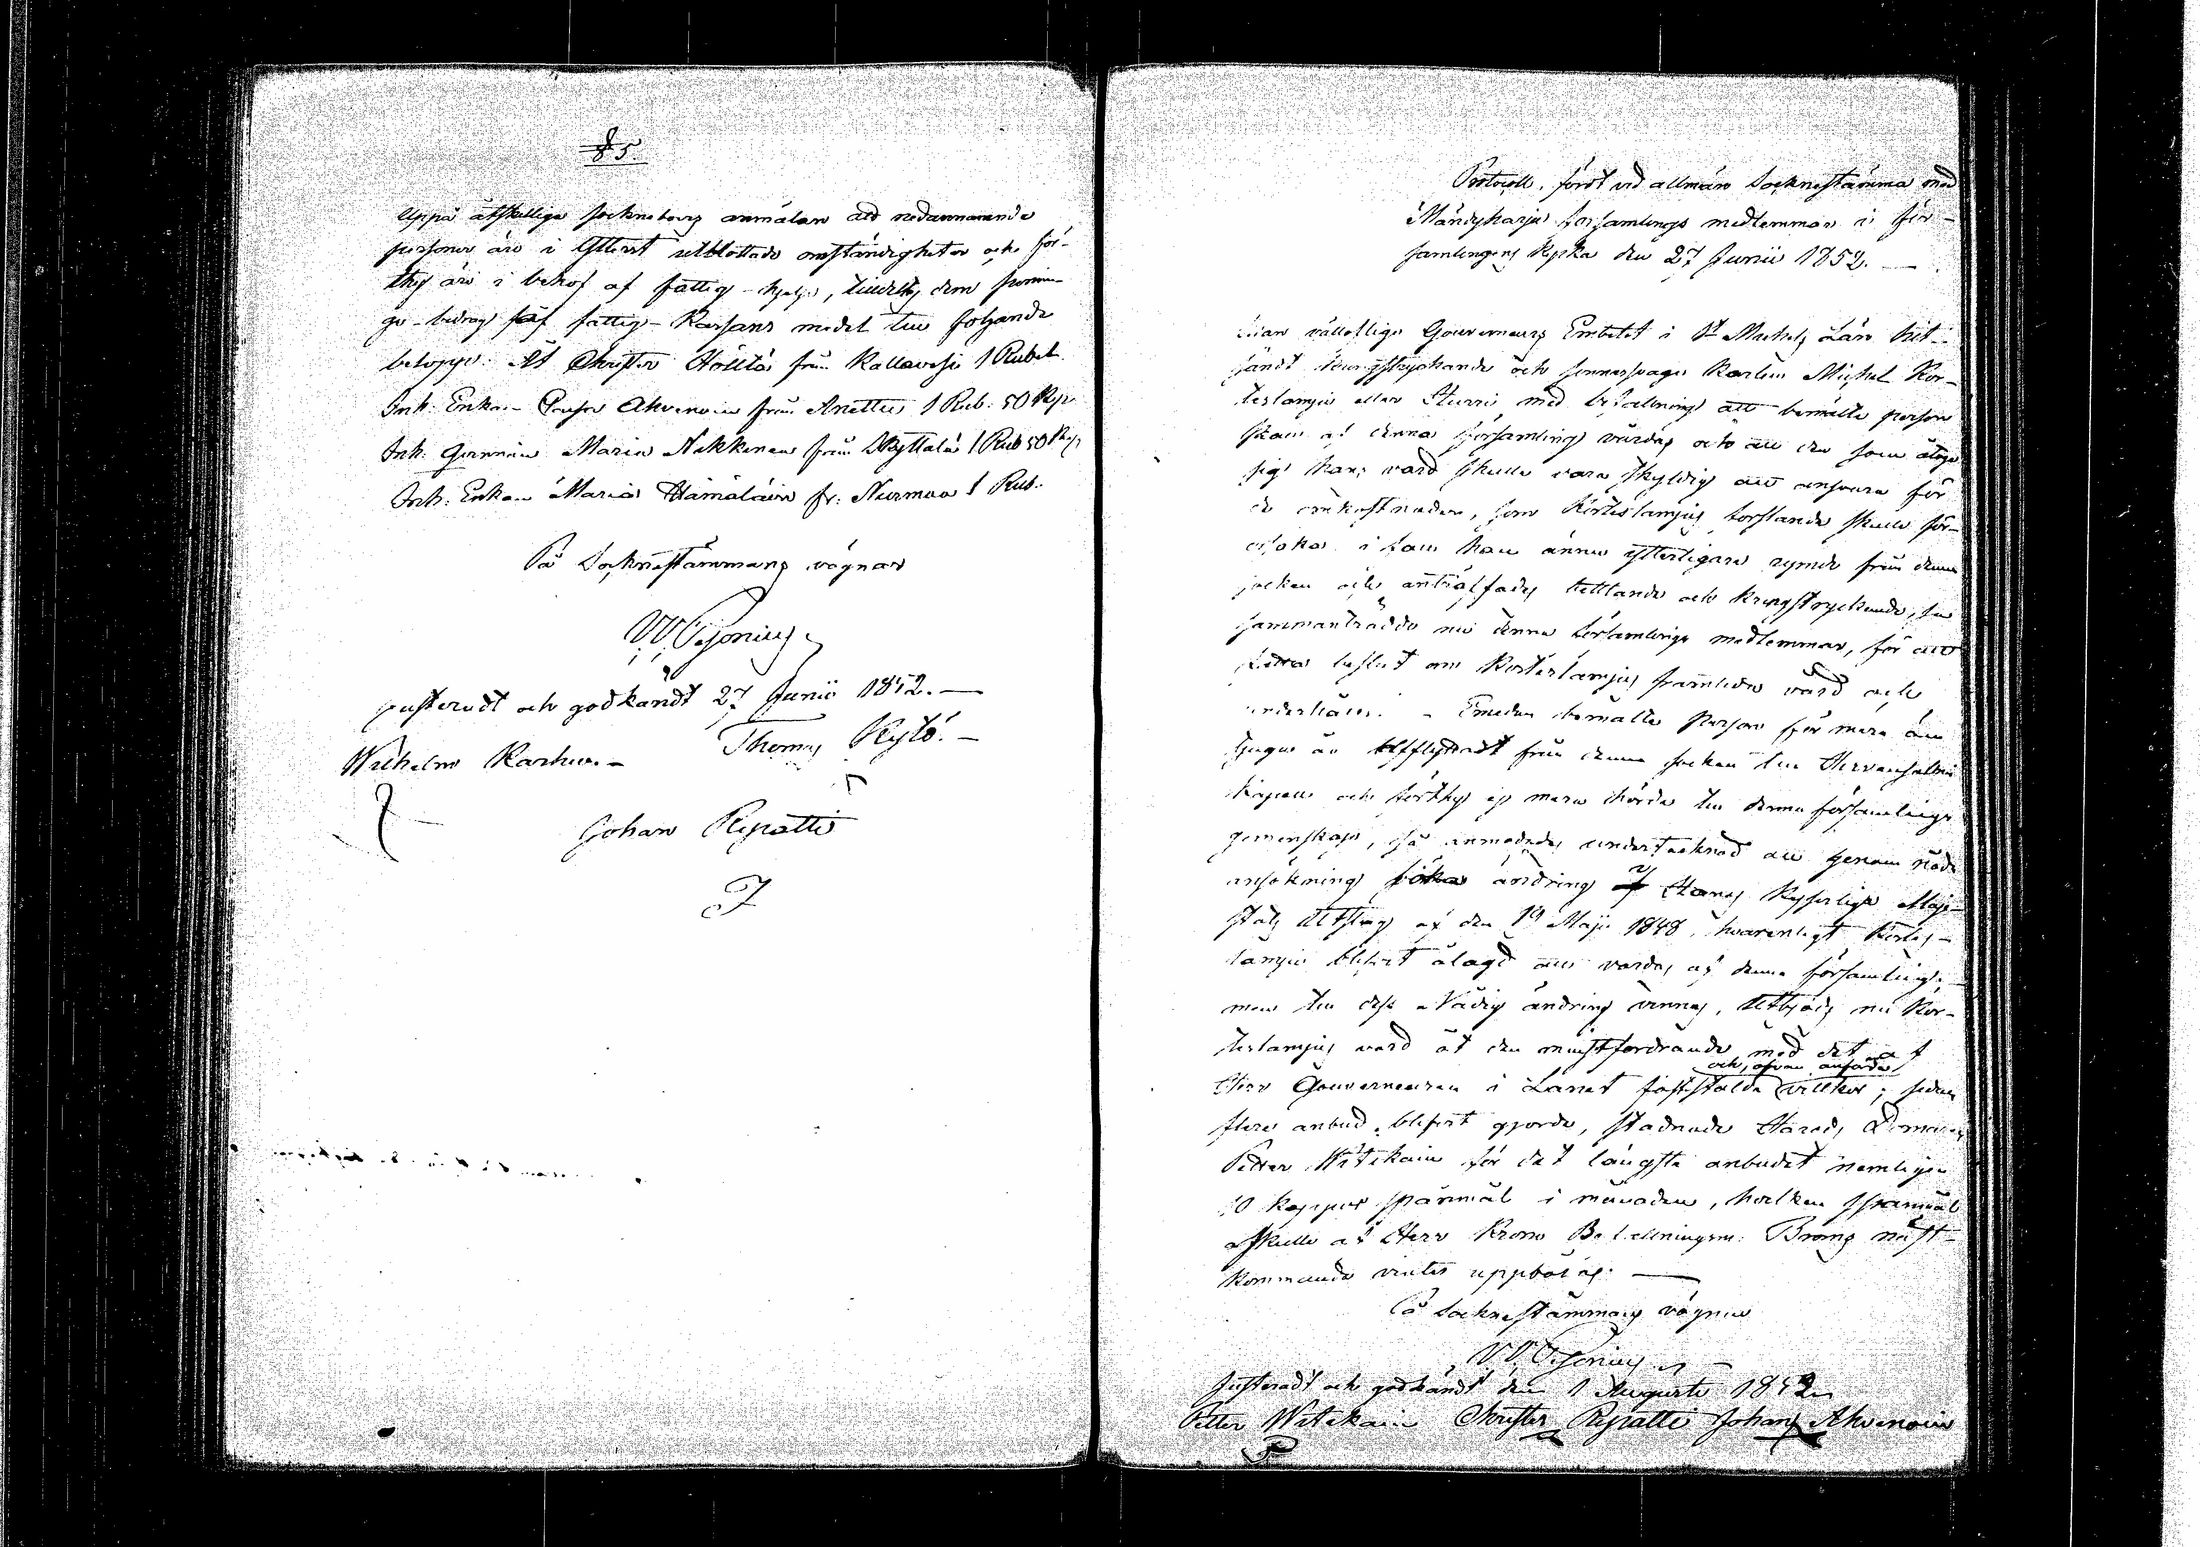 § 5.
Uppå åtskillige Sockneboers anmälan att nedannämnde
personer äro i yttterst utblottade omständigheter och för-
thy äro i behof af fattig-hjelp, tilldeltes dem penninge-
bidrag af fattig-Kassans medel till följande
belopp: Åt Christer Hölttä från Kallavesi 1 Rubel.
Inh: Enkan Caisa Ahvenain från Anettu 1 Rub. 50 Kop.
Inh: qvinnan Maria Nikkinen från Skyttälä 1 Rub 50 Kop
Inh: Enkan Maria Hämäläin fr: Nurmaa 1 Rub.
På Socknestämmans vägnar
W Pesonius
Justeradt och godkändt 27 Junii 1852. —
Wilhelm Karhu. — Thomas Kylö. —
Johan Repatti
Protocoll, fördt vid allmän Socknestämma med
Mändyharju församlings medlemmar i för-
samlingens Kyrka den 27 Junii 1852. —
vällofliga Gouverneurs Embetet i St Michels Län hit-
sändt kringstrykande och sinnessvage karlen Michel Kor-
teslampi eller Hurri med befallning att bemälte person
skall af denna församling vårdas och att den som åtager
sig hans vård skulle vara skyldig att ansvara för
de omkostnader, som Korteslampis bortlande skulle för-
orsaka i fall han ännu ytterligare rymde från denna
socken och anträffades tiggande och kringstrykande, så
sammanträdde nu denna församlings medlemmar, för att
fatta beslut om Korteslampis framtida vård och
underhåll. — Emedan bemälte person för mera än
tjugu år afflyttadt från denna socken till Hirvensalmi
Kapell och förthy ej mera hörde till denna församlings
gemenskap, så anmodades undertecknad att genom nåd:
ansökning söka ändring af Hans Kejserliga Maje-
stäts Utslag af den 19 Maji 1848, hvarenligt Kortes-
lampi blifvit ålagd att vårdas af denna församling;
men till dess Nådig ändring vinnes, utbjöds nu Kor-
teslampis vård åt den minstfordrande med det af
Herr Gouverneuren i Länet fastställda och ofvan anförda villkor; sedan
flere anbud blifvit gjorda, stadnade Härads Domaren
Petter Witikain för det lägsta anbudet nemligen
10 kappar spanmål i månaden, hvilken spanmål
skulle af Herr Krono Befallningsm: Brång näst-
kommande vinter uppbäras. —
På Socknestämmans vägnar
W Pesonius
Justeradt och godkändt den 1 Augusti 1852
Petter Witikain Christer Repatti Johan Ahvenain